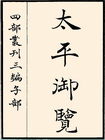 太平御覽
四部叢刊三編子部